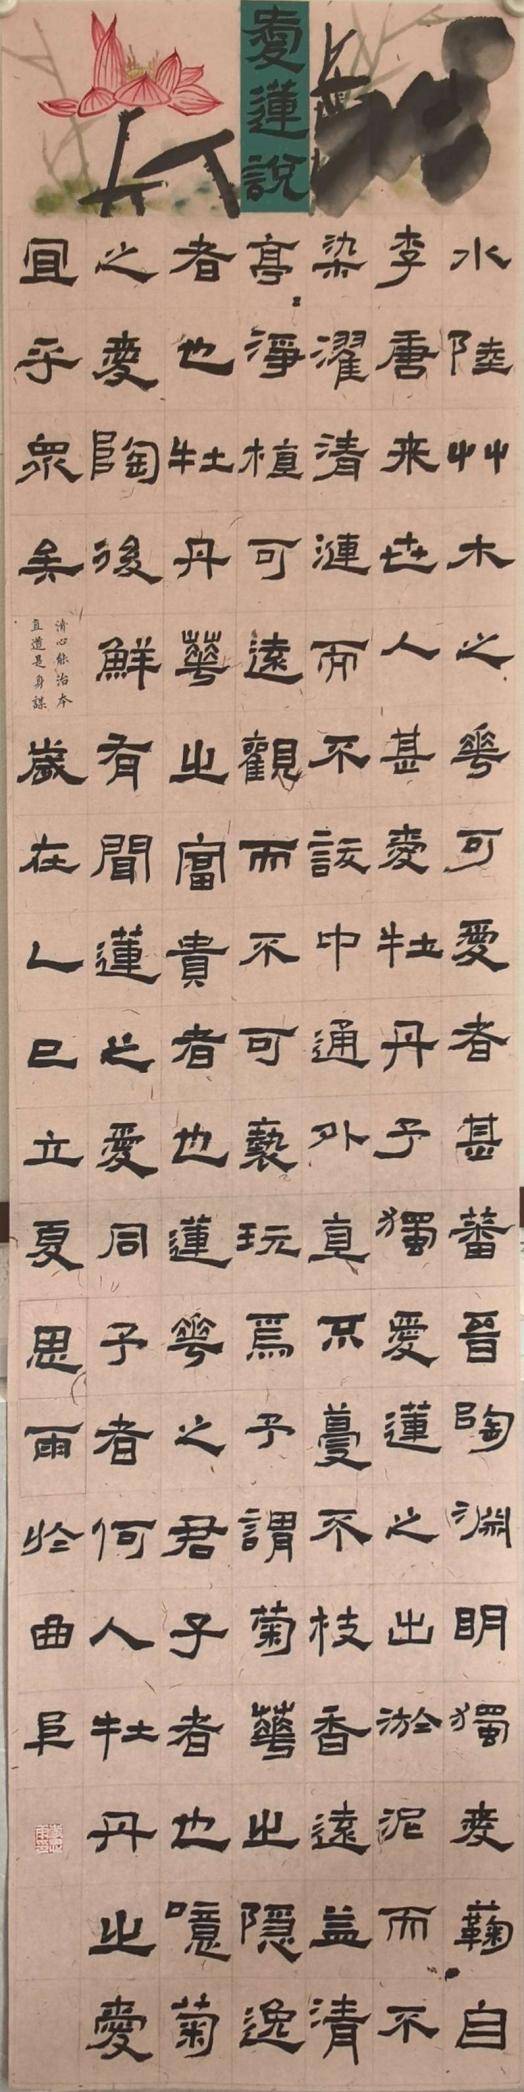 愛蓮說
水陸艸木之華可愛者甚蕃晉陶淵明獨愛鞠自
李唐来世人甚愛牡丹予獨愛蓮之出淤泥而不
染濯清漣而不訞中通外直不蔓不枝香遠益清
亭〻淨植可遠觀而不可褻玩焉予謂菊華之隐逸
者也牡丹華之富貴者也蓮華之君子者也噫菊
之愛陶後鮮有聞蓮之愛同予者何人牡丹之愛
宜乎衆矣
清心能治本
直道是身謀
歲在乙巳立夏思雨於曲阜